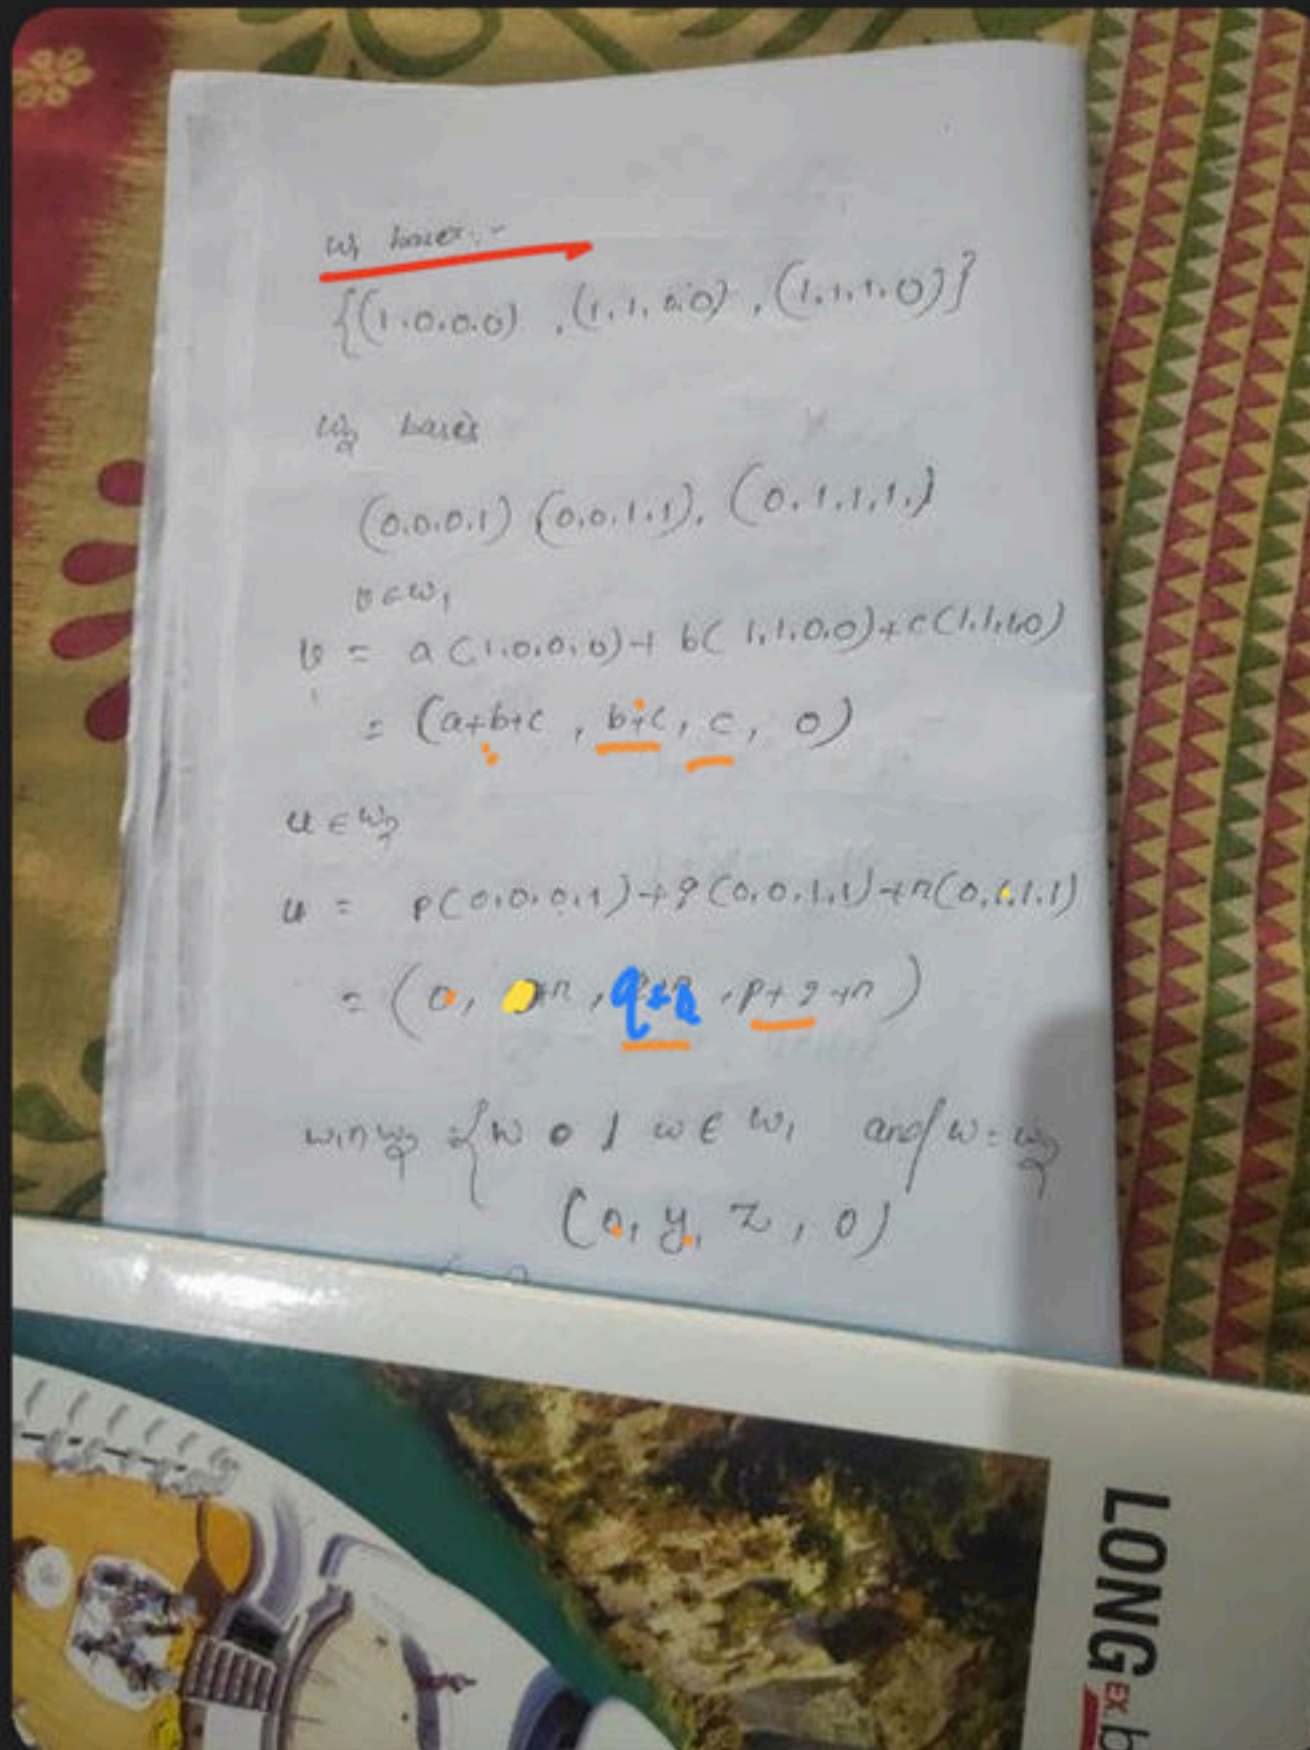 W₁ bases :-
{(1.0.0.0) , (1, 1, 0.0) , (1.1.1.0)}
W₂ bases
(0.0.0.1) (0.0.1.1), (0.1.1.1.)
v ∈ W₁
v = a(1.0.0.0) + b(1.1.0.0) + c(1.1.1.0)
= (a+b+c , b+c, c, 0)
u ∈ W₂
u = p(0.0.0.1) + q(0.0.1.1) + r(0.1.1.1)
= (0, +r, q+r, p+q+r)
W₁∩W₂ = { w | w ∈ W₁ and w = W₂
(0, y, z, 0)
LONG
EX